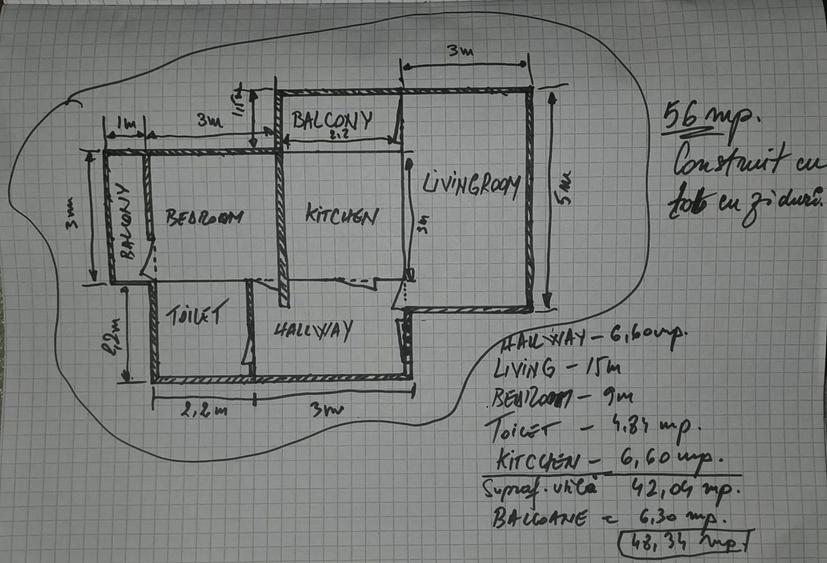 3m
1,5m
1m
3m
BALCONY
2,2
56 mp.
Construit cu
tot cu ziduri.
LIVINGROOM
5m
3m
BALCONY
BEDROOM
KITCHEN
3m
2,2m
TOILET
HALLWAY
2,2m
3m
HALLWAY - 6,60 mp.
LIVING - 15m
BEDROOM - 9m
TOILET - 4,84 mp.
KITCHEN - 6,60 mp.
Supraf. utilă 42,04 mp.
BALCOANE = 6,30 mp.
48,34 mp.